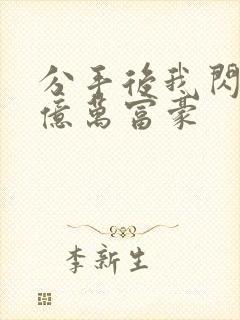 分手後我閃
億萬富豪
李新生